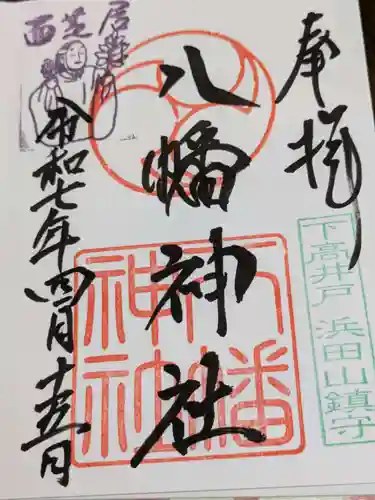 奉拝
下高井戸 浜田山鎮守
八幡神社
八幡
神社
令和七年四月十五日